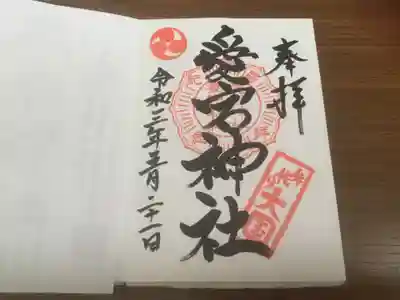 奉拝
愛宕神社
令和三年五月二十一日